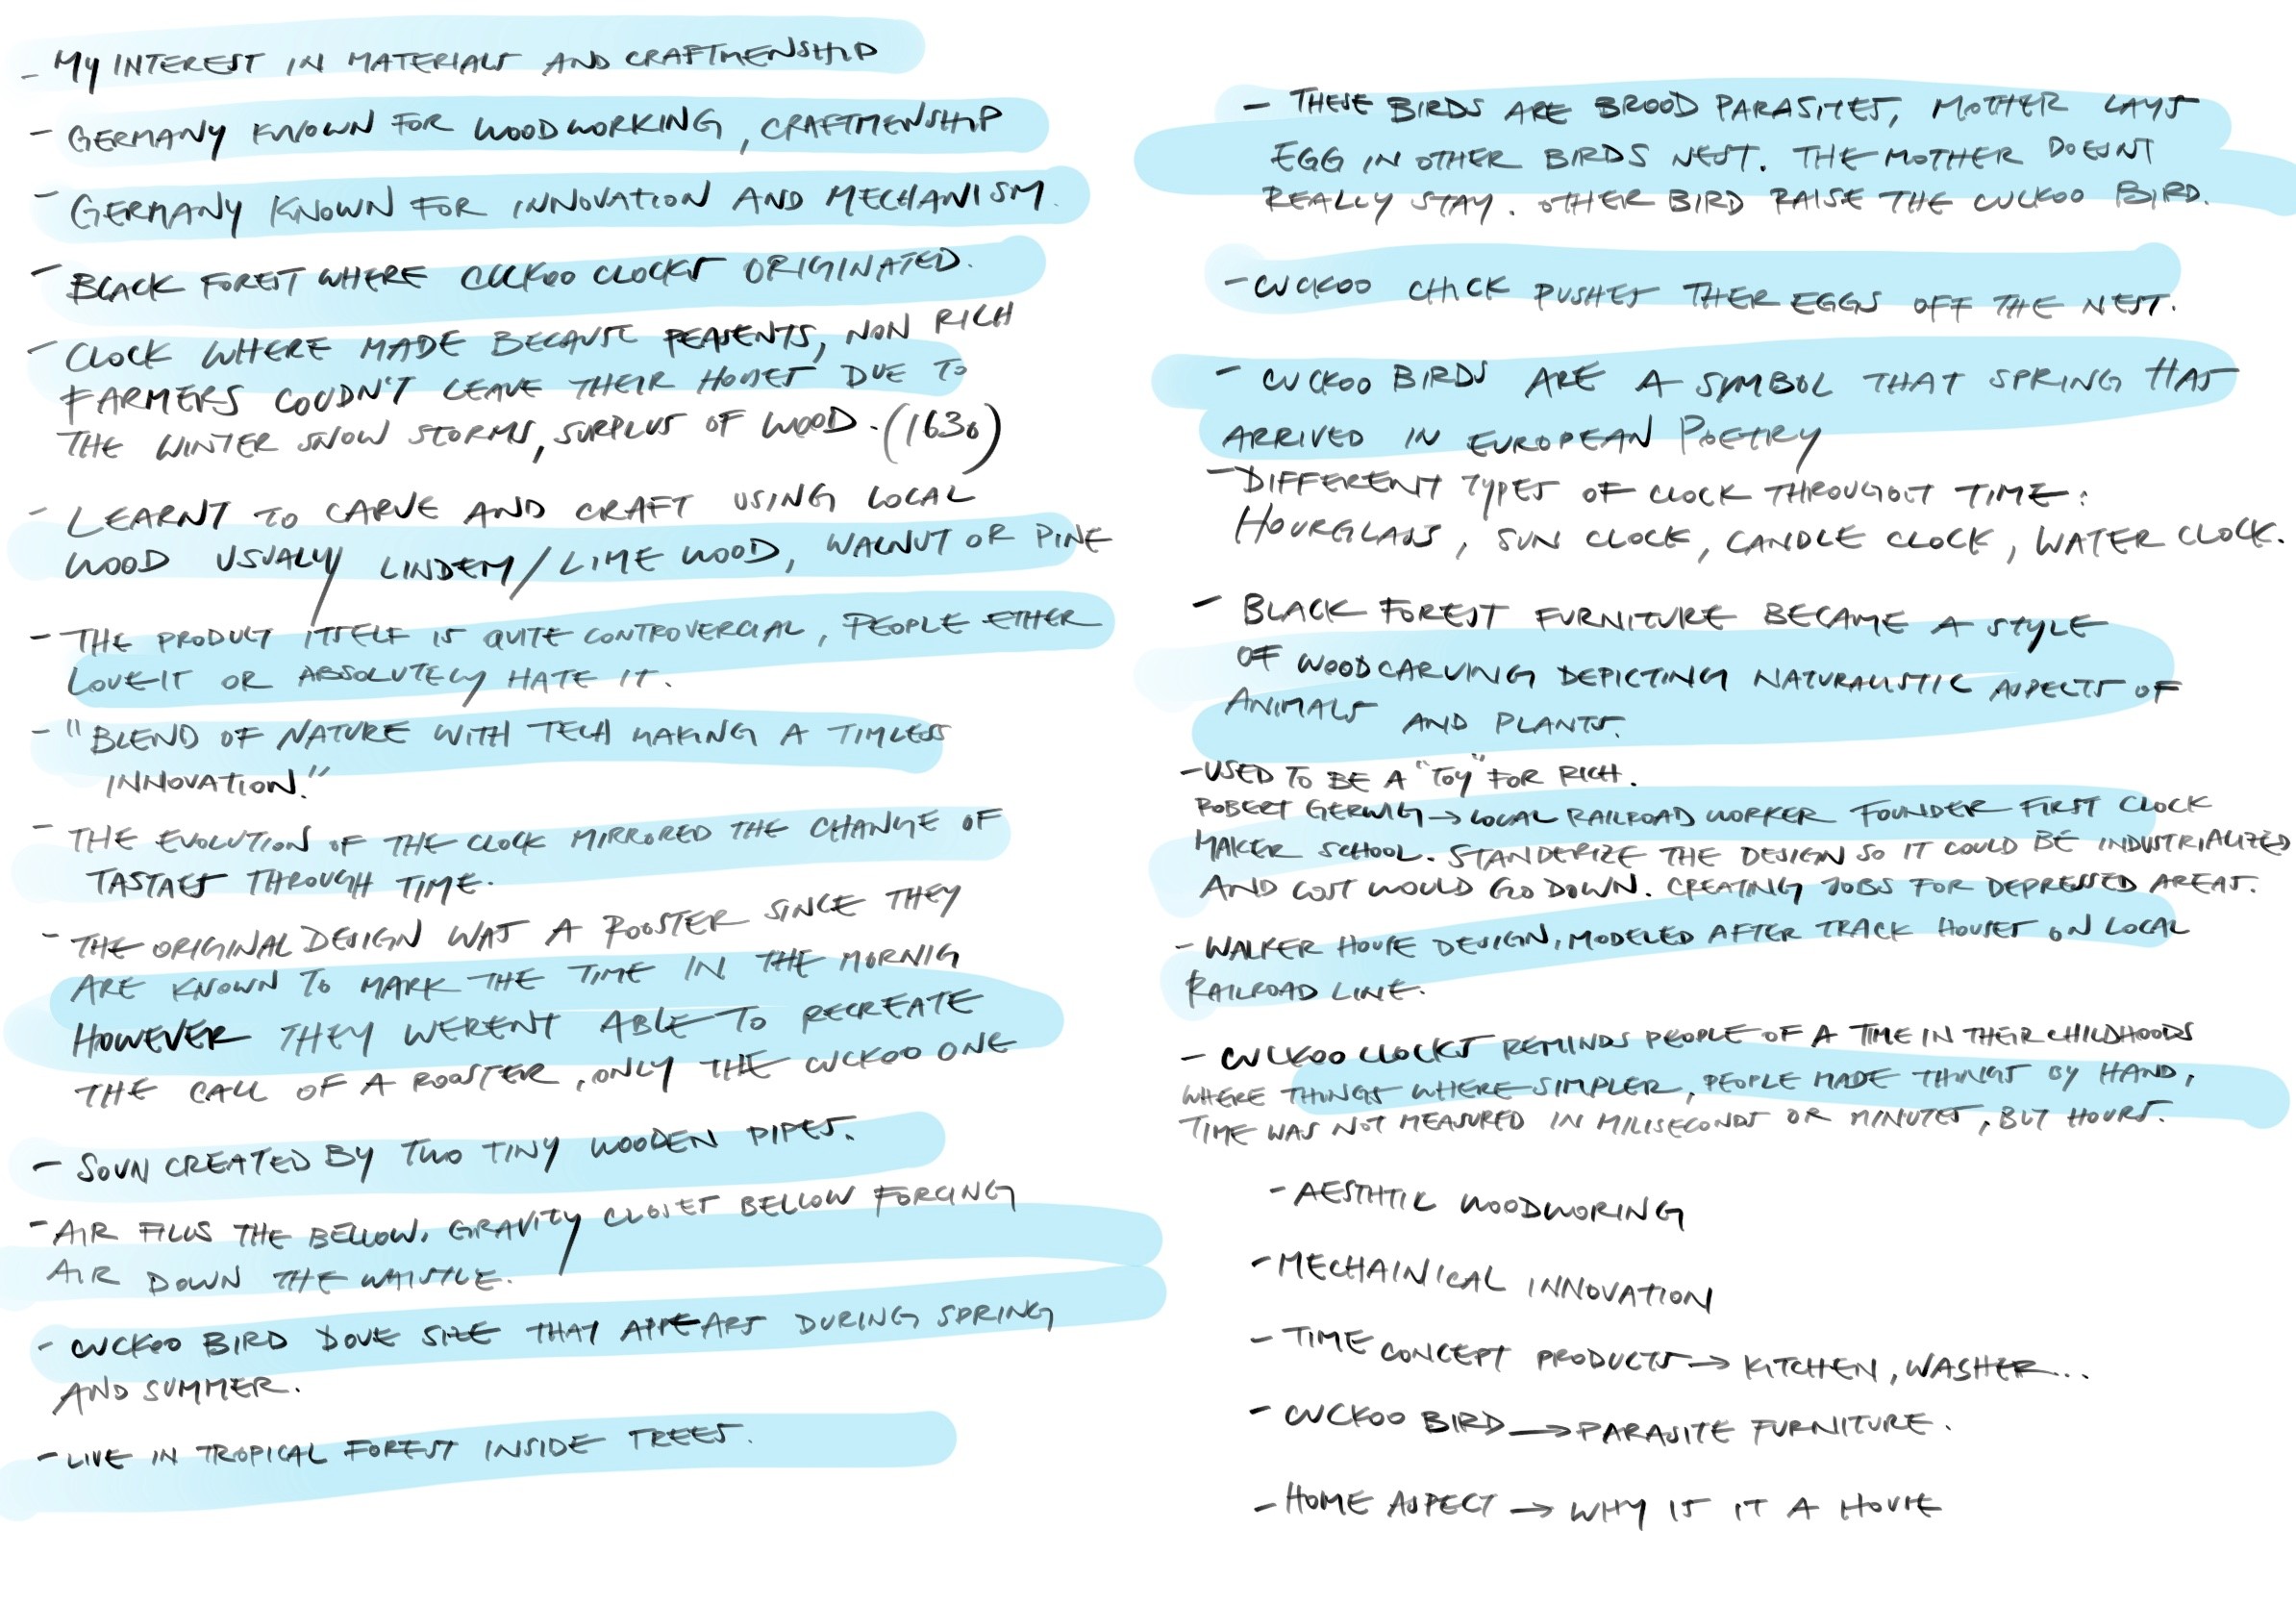 - MY INTEREST IN MATERIALS AND CRAFTMENSHIP
- GERMANY KNOWN FOR WOODWORKING, CRAFTMENSHIP
- GERMANY KNOWN FOR INNOVATION AND MECHANISM.
- BLACK FOREST WHERE CUCKOO CLOCKS ORIGINATED.
- CLOCK WHERE MADE BECAUSE PEASENTS, NON RICH
FARMERS COUDN'T LEAVE THEIR HOUSES DUE TO
THE WINTER SNOW STORMS, SURPLUS OF WOOD. (1630)
- LEARNT TO CARVE AND CRAFT USING LOCAL
WOOD USUALY LINDEM/LIME WOOD, WALNUT OR PINE
- THE PRODUCT ITSELF IS QUITE CONTROVERCIAL, PEOPLE ETHER
LOVE IT OR ABSOLUTELY HATE IT.
- "BLEND OF NATURE WITH TECH MAKING A TIMLESS
INNOVATION."
- THE EVOLUTION OF THE CLOCK MIRRORED THE CHANGE OF
TASTAES THROUGH TIME.
- THE ORIGINAL DESIGN WAS A ROOSTER SINCE THEY
ARE KNOWN TO MARK THE TIME IN THE MORNIG
HOWEVER THEY WERENT ABLE TO RECREATE
THE CALL OF A ROOSTER, ONLY THE CUCKOO ONE
- SOUN CREATED BY TWO TINY WOODEN PIPES.
- AIR FILLS THE BELLOW. GRAVITY CLOSES BELLOW FORCING
AIR DOWN THE WHISTLE.
- CUCKOO BIRD DOVE SIZE THAT APPEARS DURING SPRING
AND SUMMER.
- LIVE IN TROPICAL FOREST INSIDE TREES.
- THESE BIRDS ARE BROOD PARASITES, MOTHER LAYS
EGG IN OTHER BIRDS NEST. THE MOTHER DOESNT
REALLY STAY. OTHER BIRD RAISE THE CUCKOO BIRD.
- CUCKOO CHICK PUSHES THER EGGS OFF THE NEST.
- CUCKOO BIRDS ARE A SYMBOL THAT SPRING HAS
ARRIVED IN EUROPEAN POETRY
- DIFFERENT TYPES OF CLOCK THROUGOUT TIME:
HOURGLASS, SUN CLOCK, CANDLE CLOCK, WATER CLOCK.
- BLACK FOREST FURNITURE BECAME A STYLE
OF WOODCARVING DEPICTING NATURALISTIC ASPECTS OF
ANIMALS AND PLANTS.
- USED TO BE A "TOY" FOR RICH.
ROBERT GERWIG → LOCAL RAILROAD WORKER FOUNDER FIRST CLOCK
MAKER SCHOOL. STANDERIZE THE DESIGN SO IT COULD BE INDUSTRIALIZED
AND COST WOULD GO DOWN. CREATING JOBS FOR DEPRESSED AREAS.
- WALKER HOUSE DESIGN, MODELED AFTER TRACK HOUSES ON LOCAL
RAILROAD LINE.
- CUCKOO CLOCKS REMINDS PEOPLE OF A TIME IN THEIR CHILDHOODS
WHERE THINGS WHERE SIMPLER, PEOPLE MADE THINGS BY HAND,
TIME WAS NOT MEASURED IN MILISECONDS OR MINUTES, BUT HOURS.
- AESTHTIC WOODWORING
- MECHAINICAL INNOVATION
- TIME CONCEPT PRODUCTS → KITCHEN, WASHER...
- CUCKOO BIRD → PARASITE FURNITURE.
- HOME ASPECT → WHY IS IT A HOUSE